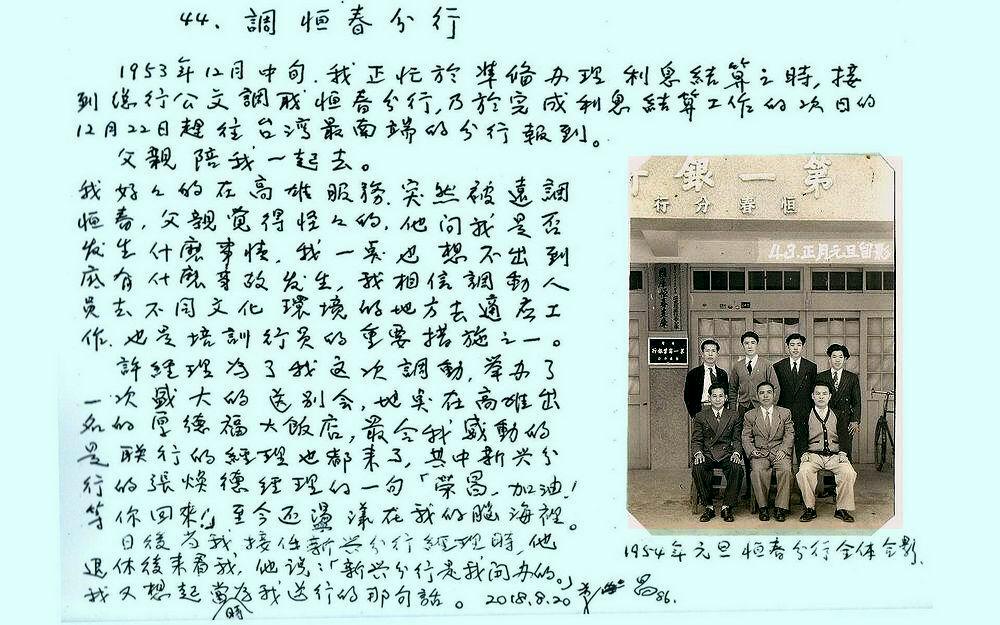 44. 調恒春分行
1953年12月中旬.我正忙於準备办理利息結算之時,接
到總行公文調職恒春分行,乃於完成利息結算工作的次日的
12月22日趕往台湾最南端的分行報到。
父親陪我一起去。
我好々的在高雄服務.突然被遠調
恒春,父親覚得怪々的.他问我是否
发生什麽事情,我一奌也想不出到
底有什麽事故发生,我相信調動人
員去不同文化環境的地方去適应工
作.也是培訓行員的重要措施之一。
許経理為了我这次調動,举办了
一次盛大的送别会,地奌在高雄出
名的厚德福大飯店,最令我感動的
是联行的経理也都来了,其中新兴分
行的張煥德経理的一句「荣昌,加油!
等你回来!」至今还盪漾在我的腦海裡。
日後為我接任新兴分行経理時,他
退休後来看我,他说:「新兴分行是我開办的。」
我又想起當時為我送行的那句話。2018.8.20 昌86.
第一銀行
恒春分行
43.正月元旦留影
第一商業銀行
1954年元旦恒春分行全体合影.